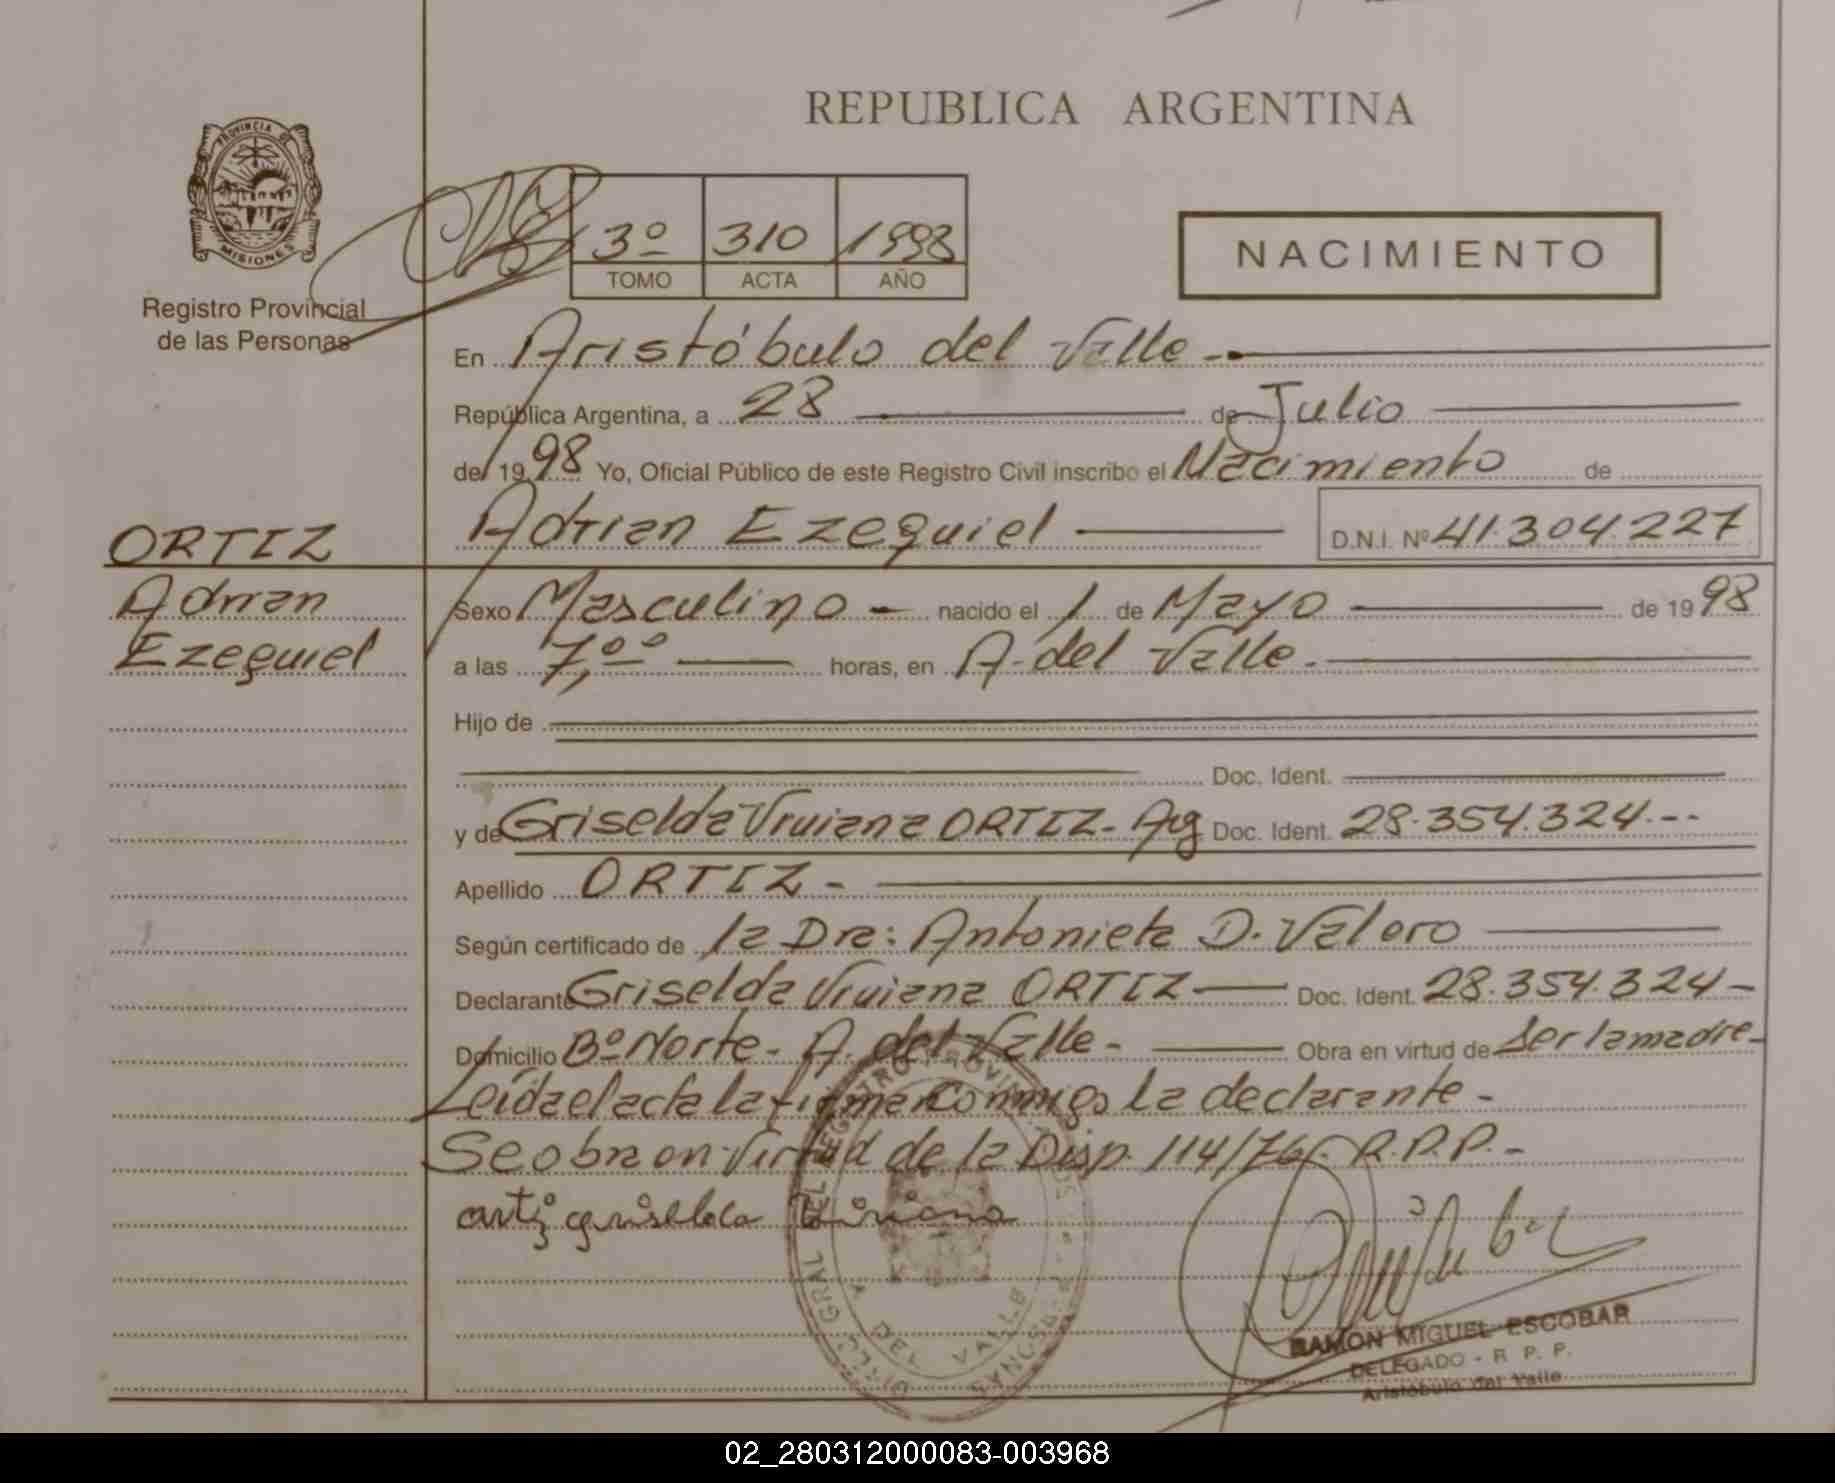 REPUBLICA ARGENTINA
PROVINCIA DE
MISIONES
Registro Provincial
de las Personas
3º 310 1998
TOMO ACTA AÑO
NACIMIENTO
En Aristóbulo del Valle -
República Argentina, a 28 de Julio
de 1998 Yo, Oficial Público de este Registro Civil inscribo el Nacimiento de
Adrian Ezequiel D.N.I. Nº 41.304.227
ORTIZ
Adrian
Ezequiel
Sexo Masculino - nacido el 1 de Mayo de 1998
a las 7,ºº horas, en A. del Valle.
Hijo de
Doc. Ident.
y de Griselda Viviana ORTIZ - Arg Doc. Ident. 28.354.324.--
Apellido ORTIZ -
Según certificado de la Dra: Antonieta D. Valoro
Declarante Griselda Viviana ORTIZ Doc. Ident. 28.354.324 -
Domicilio Bº Norte - A. del Valle - Obra en virtud de Ser la madre -
Leída el acta la firman conmigo la declarante -
Se obra en virtud de la Disp. 114/76. R.P.P. -
ortiz griselda Viviana
RAMON MIGUEL ESCOBAR
DELEGADO - R. P. P.
Aristóbulo del Valle
DEL VALLE
02_280312000083-003968